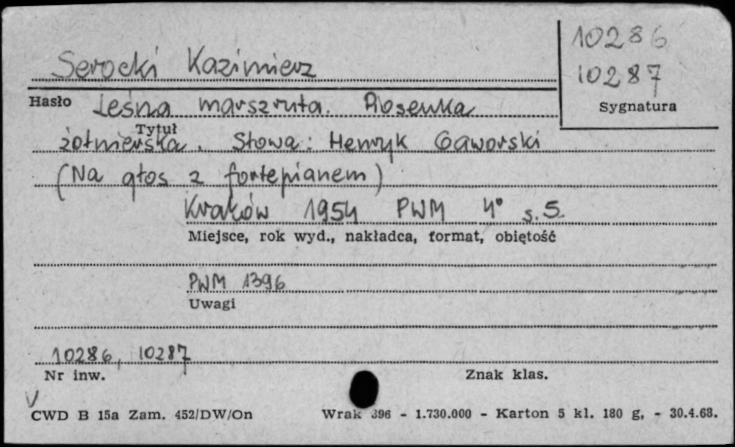 10286
Serocki Kazimierz
10287
Hasło Leśna marszruta. Piosenka
Sygnatura
Tytuł
żołnierska. Słowa: Henryk Gaworski
(Na głos z fortepianem)
Kraków 1954 PWM 4° s. 5.
Miejsce, rok wyd., nakładca, format, obiętość
PWM 1396
Uwagi
10286, 10287
Nr inw.
Znak klas.
CWD B 15a Zam. 452/DW/On Wrak 396 - 1.730.000 - Karton 5 kl. 180 g, - 30.4.68.